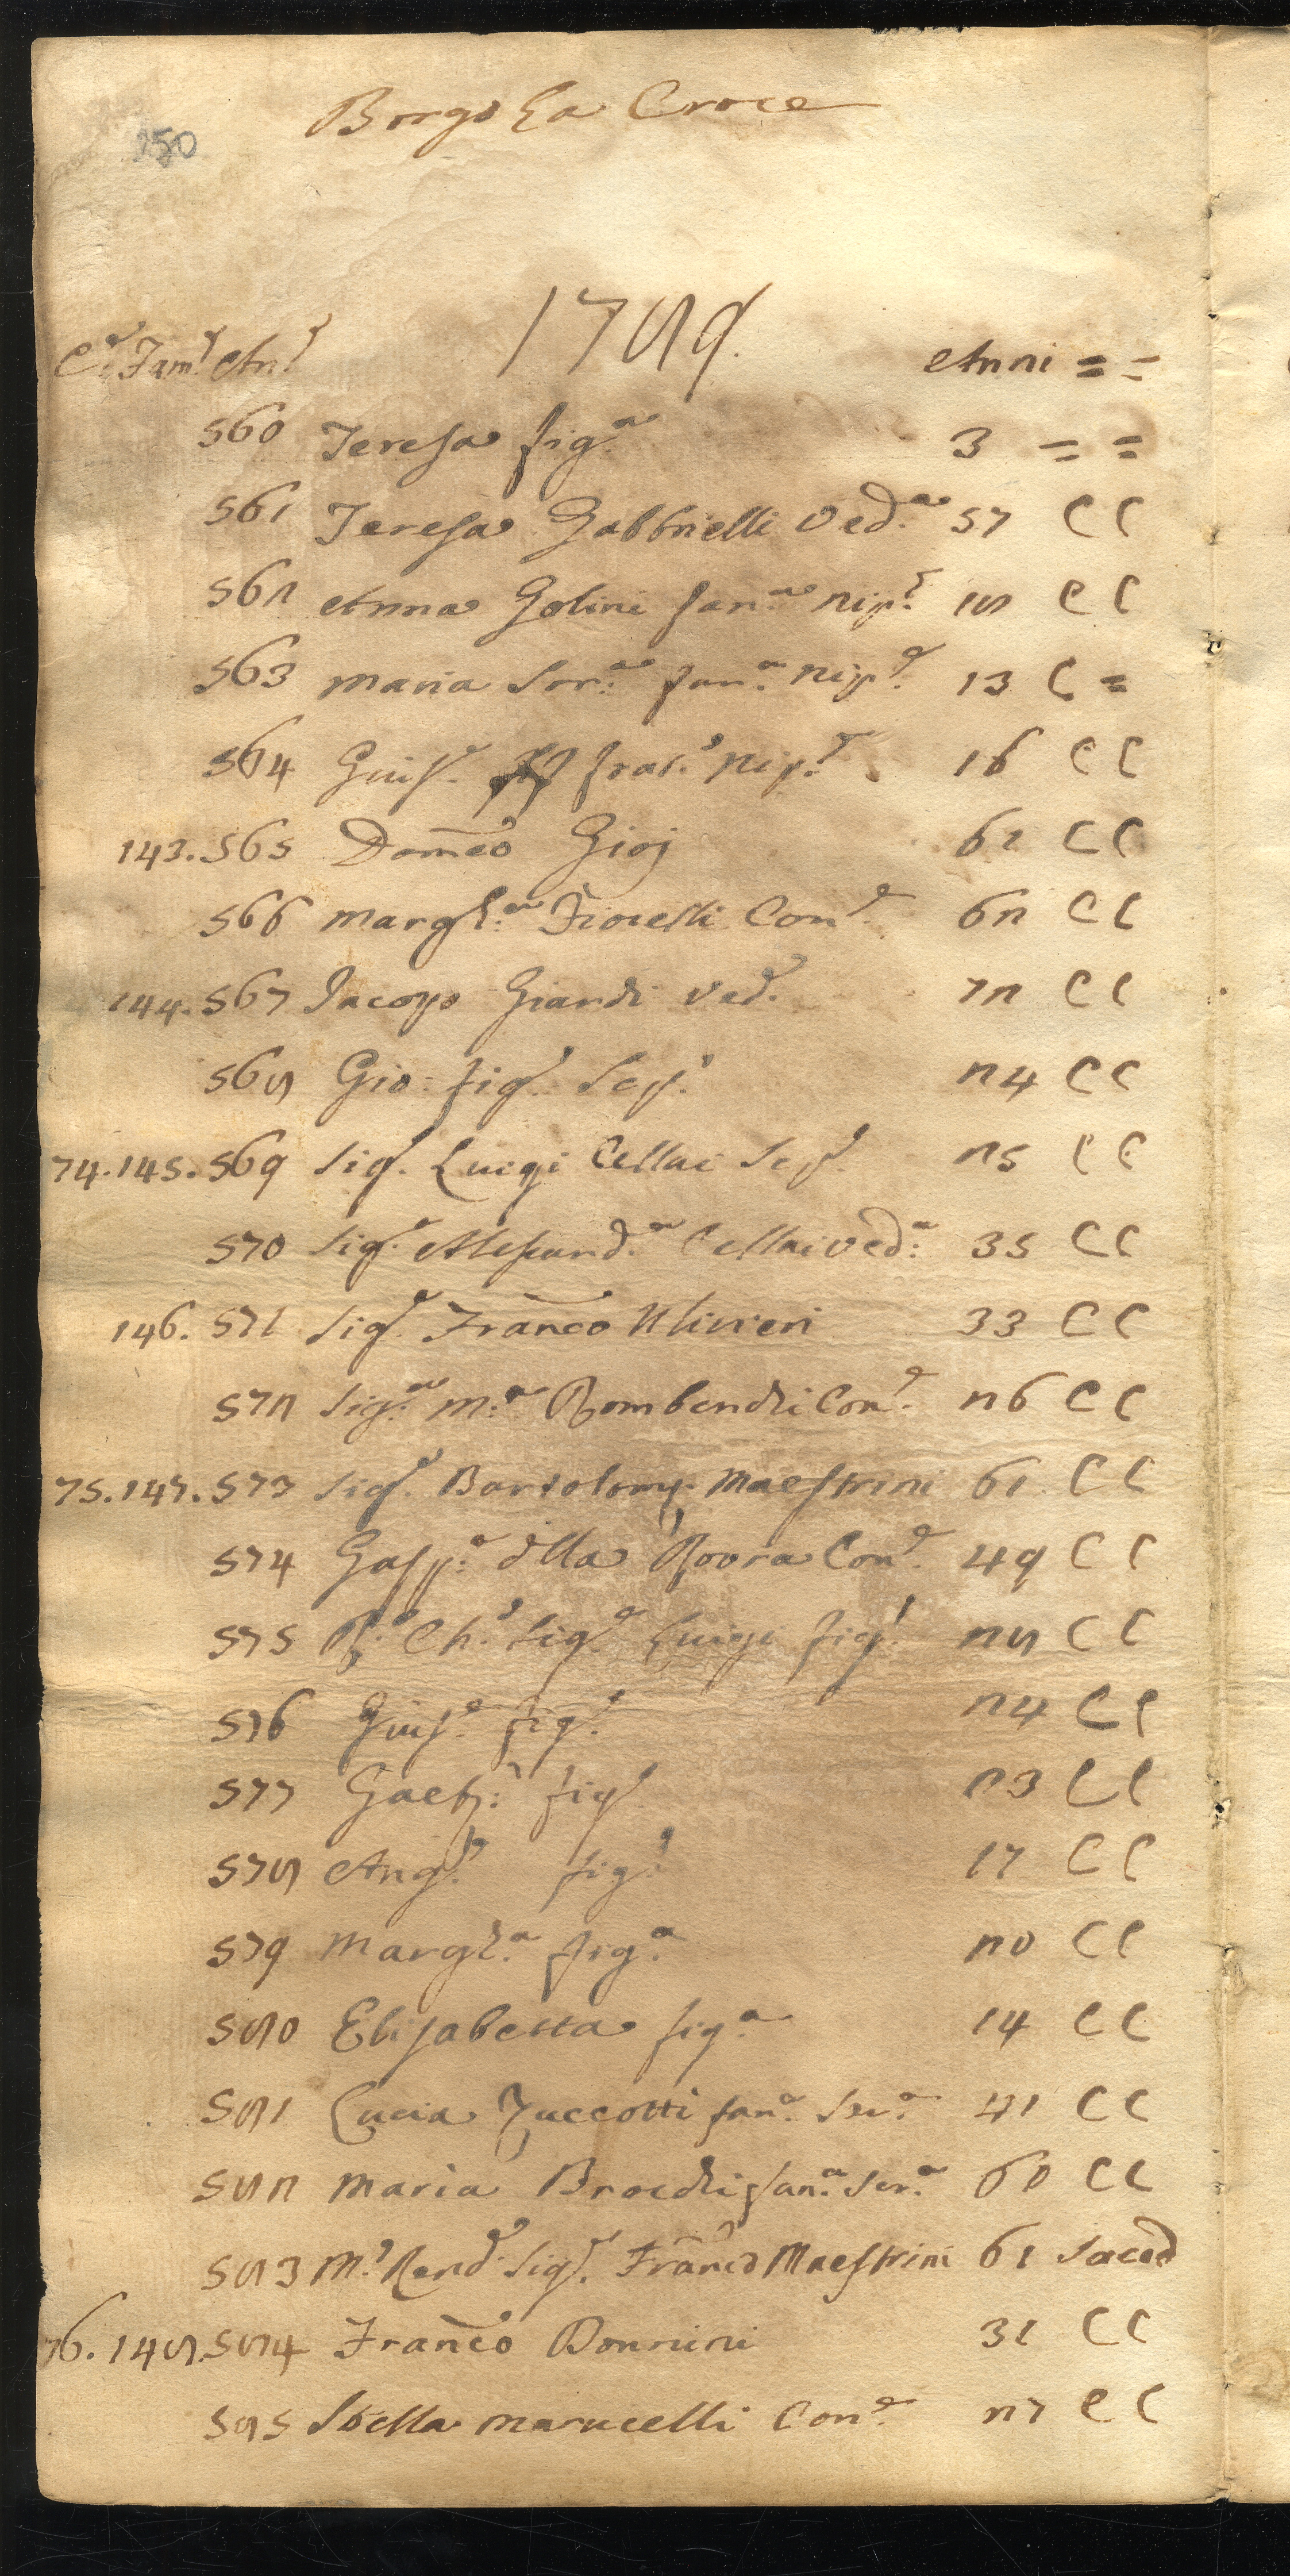 Borgo La Croce
250
1789.
Ce. Fame. Ane. Anni = =
560 Teresa figa. 3 = =
561 Teresa Gabbrielli Veda. 57 C C
562 Anna Golini fana. nipe. 18 C C
563 Maria Sora. fana. nipe. 13 C =
564 Giuse. frato. nipe. 16 C C
143. 565 Domco Gioj 61 C C
566 Margha. Fiorelli Cone. 62 C C
144. 567 Jacopo Giardi Vedo. 72 C C
568 Gio: figo. Scpo. 24 C C
74. 145. 569 Sige. Luigi Cellai Scpo. 25 C C
570 Sige. Alessanda. Cellai Veda: 35 C C
146. 571 Sige. Franco Ulivieri 33 C C
572 Siga. Ma. Bombardi Cone. 26 C C
75. 147. 573 Sige. Bartolom: Maestrini 61 C C
574 Gaspa. dlla Rovra Cone. 49 C C
575 Ro. Cho. Sige. Luigi figo. 28 C C
576 Giuse. figo. 24 C C
577 Gaeto: figo. 23 C C
578 Ango. figo. 17 C C
579 Margha. figa. 20 C C
580 Elisabetta figa. 14 C C
581 Lucia Zuccotti fana. Sera. 41 C C
582 Maria fana. Sera. 60 C C
583 Mo. Rend. Sige. Franco Maestrini 61 Saced
76. 148. 584 Franco Bonnini 31 C C
585 Stella Marucelli Cone. 27 C C